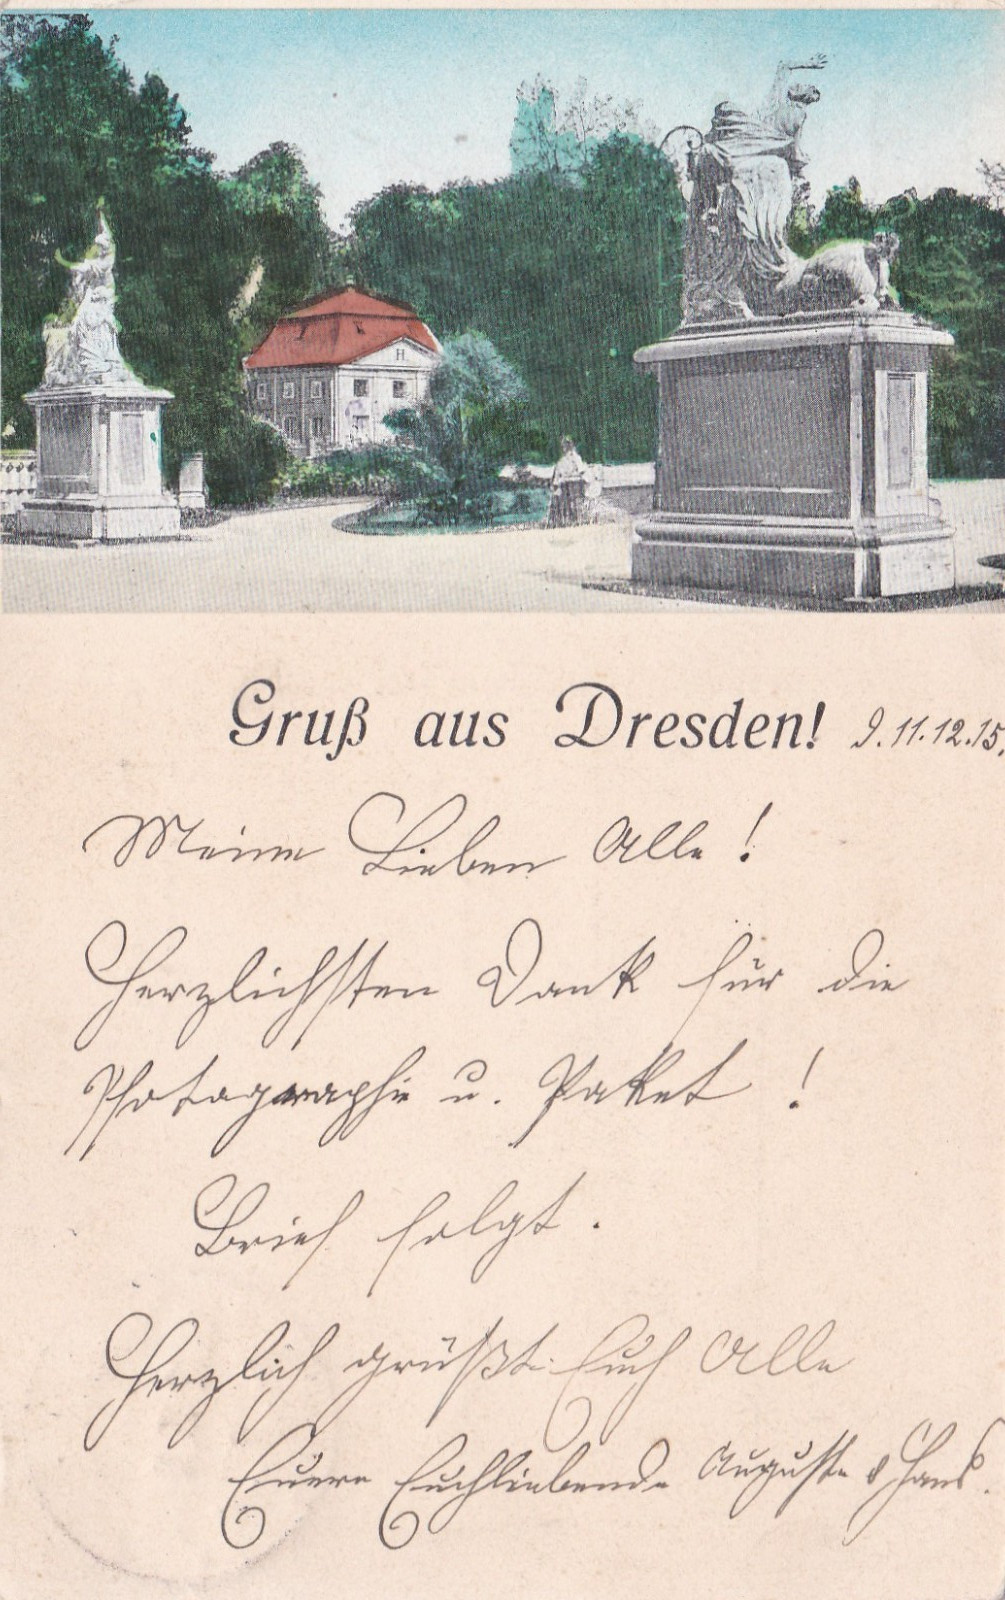 Gruß aus Dresden! D. 11.12.15.
Meine Lieben Alle!
Herzlichsten Dank für die
Photographie u. Paket!
Brief folgt.
Herzlich grüßt Euch Alle
Euere Euchliebende Auguste & Hans.